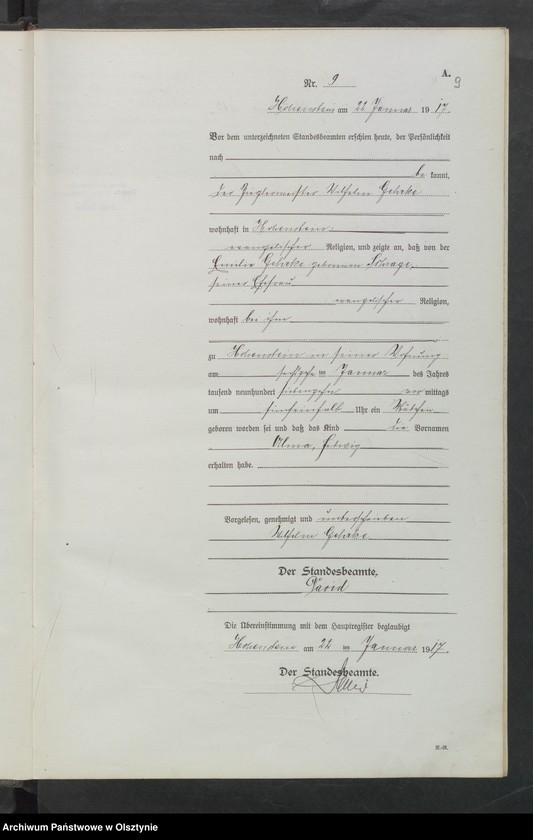 A.
9
Nr. 9
Hohenstein am 22 Januar 1917.
Vor dem unterzeichneten Standesbeamten erschien heute, der Persönlichkeit
nach
be kannt,
der Zieglermeister Wilhelm Gehrke
wohnhaft in Hohenstein
evangelischer Religion, und zeigte an, daß von der
Emilie Gehrke geborenen
seiner Ehefrau
evangelischer Religion,
wohnhaft bei ihm
zu Hohenstein in seiner Wohnung
am im Januar des Jahres
tausend neunhundert siebenzehn vor mittags
um Uhr ein Mädchen
geboren worden sei und daß das Kind die Vornamen
Alma, Hedwig
erhalten habe.
Vorgelesen, genehmigt und unterschrieben
Wilhelm Gehrke
Der Standesbeamte.
David
Die Übereinstimmung mit dem Hauptregister beglaubigt
Hohenstein am 22 ten Januar 1917.
Der Standesbeamte.
Archiwum Państwowe w Olsztynie